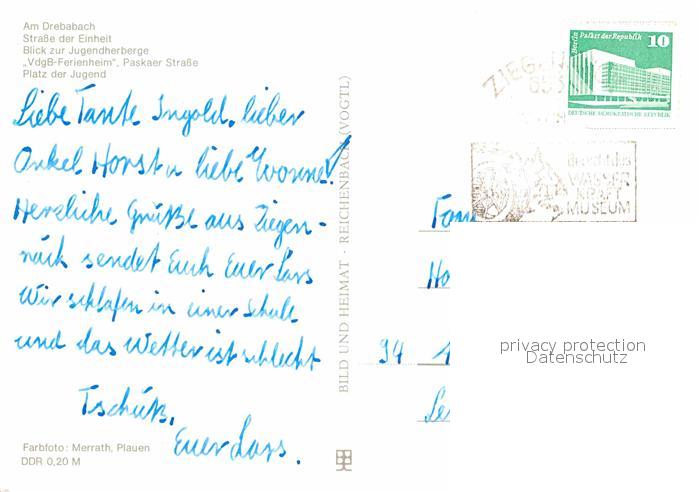 Am Drebabach
Straße der Einheit
Blick zur Jugendherberge
„VdgB-Ferienheim", Paskaer Straße
Platz der Jugend
Liebe Tante Ingold, lieber
Onkel Horst u liebe Yvonne!
Herzliche Grüße aus Ziegen-
rück sendet Euch Euer Lars
Wir schlafen in einer Schule
und das Wetter ist schlecht
Tschüß,
Euer Lars.
Farbfoto: Merrath, Plauen
DDR 0,20 M
BILD UND HEIMAT · REICHENBACH (VOGTL)
Berlin Palast der Republik
10
DEUTSCHE DEMOKRATISCHE REPUBLIK
WASSER
KRAFT
MUSEUM
Fam
Ho
94
privacy protection
Datenschutz